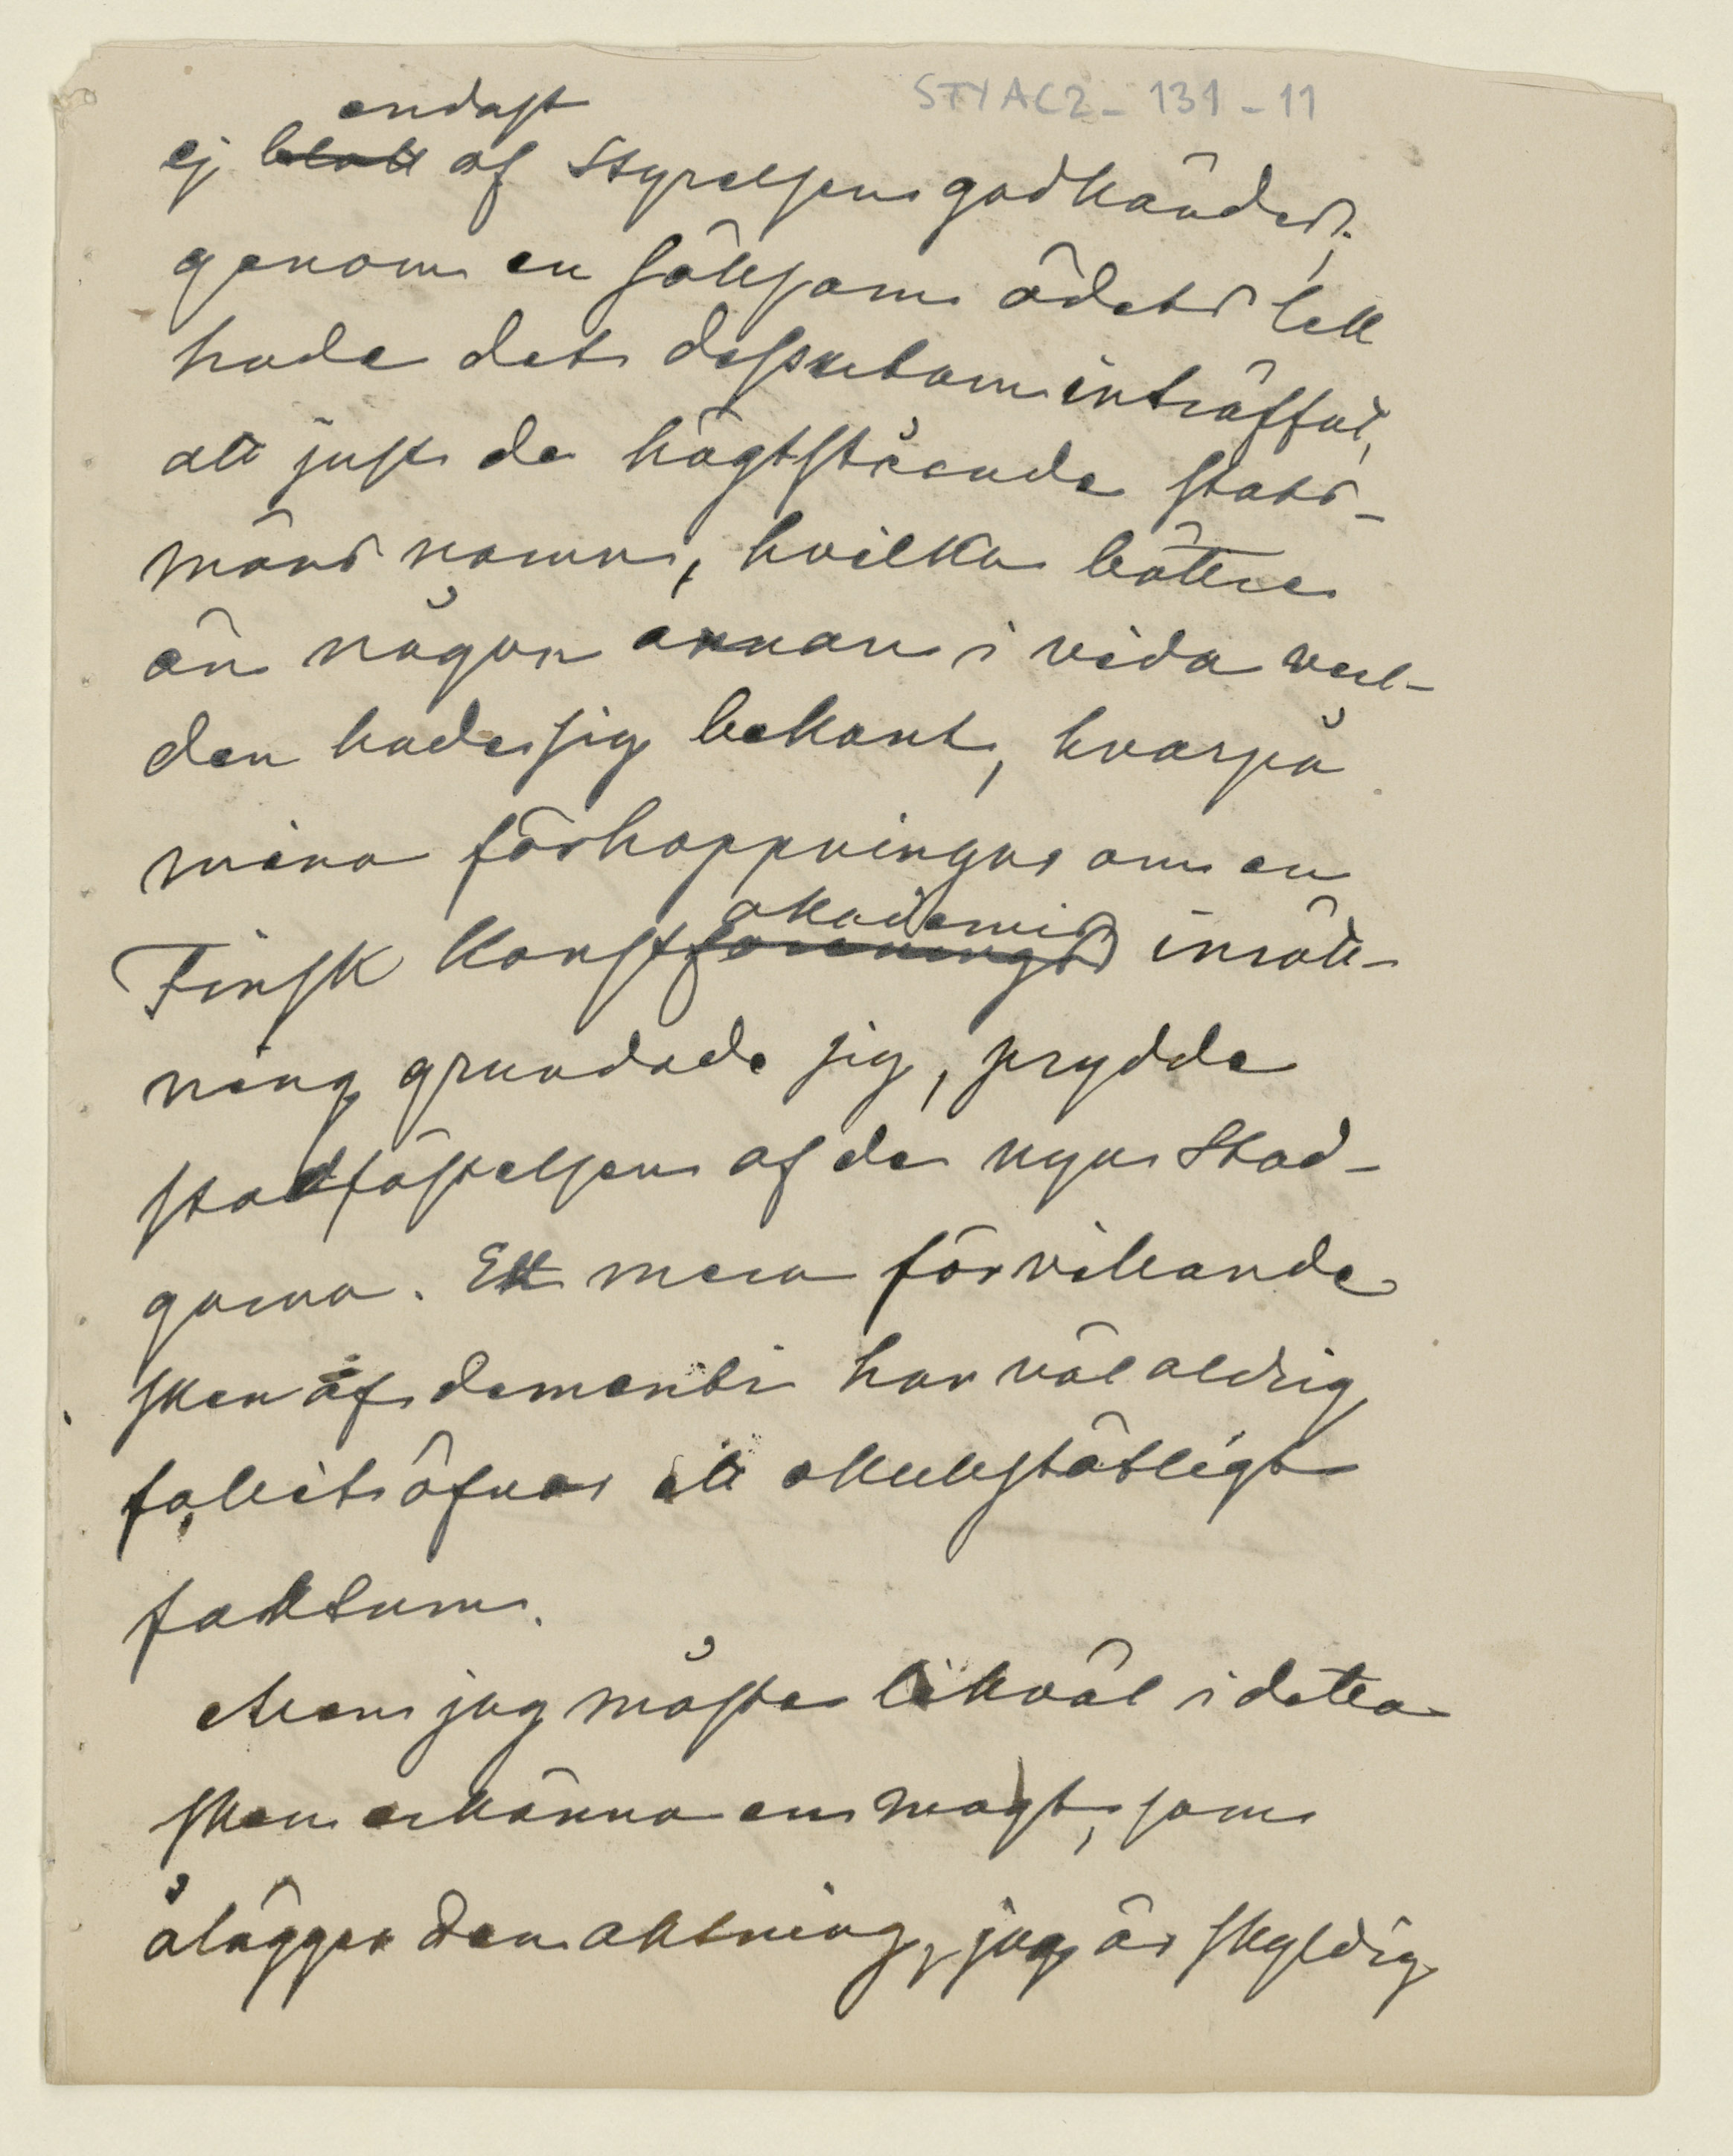 STYAC2-131-11
endast
ej blott af Styrelsen godkändes;
genom en sällsam ödets lek
hade det dessutom inträffat,
att just de högtstående stats-
mäns namn, hvilka bättre
än någon annan i vida verl-
den hade sig bekant, hvarpå
mina förhoppningar om en
akademis
Finsk Konstförenings inrätt-
ning grundade sig, prydde
stadfästelsen af de nya Stad-
garna. Ett mera förvillande
sken af dementi har väl aldrig
tillintetgjort ett oomkullstötligt
faktum.
Men jag måste likväl i detta
sken erkänna en magt, som
ålägger den aktning, jag är skyldig